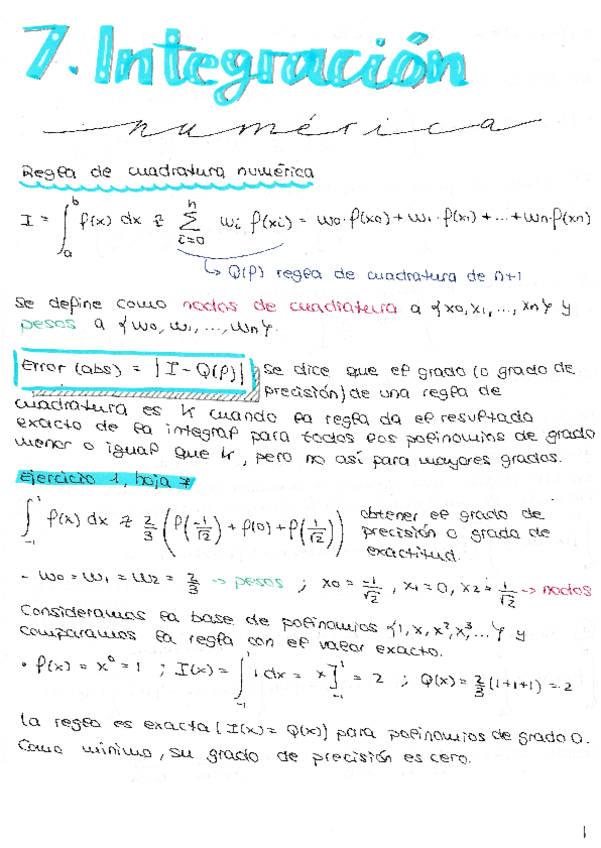 7. Integración
numérica
Regla de cuadratura numérica
I = ∫_a^b f(x) dx ≈ Σ_{i=0}^{n} wi f(xi) = w0·f(x0) + w1·f(x1) + ... + wn·f(xn)
↳ Q(f) regla de cuadratura de n+1
Se define como nodos de cuadratura a {x0, x1, ..., xn} y
pesos a {w0, w1, ..., wn}.
Error (abs) = |I - Q(f)| Se dice que el grado (o grado de
precisión) de una regla de
cuadratura es k cuando la regla da el resultado
exacto de la integral para todos los polinomios de grado
menor o igual que k, pero no así para mayores grados.
Ejercicio 1, hoja 7
∫_{-1}^{1} f(x) dx ≈ 2/3 (f(-1/√2) + f(0) + f(1/√2)) obtener el grado de
precisión o grado de
exactitud.
- w0 = w1 = w2 = 2/3 → pesos ; x0 = -1/√2, x1 = 0, x2 = 1/√2 → nodos
Consideramos la base de polinomios {1, x, x², x³, ...} y
comparamos la regla con el valor exacto.
• f(x) = x⁰ = 1 ; I(x) = ∫_{-1}^{1} 1 dx = x]_{-1}^{1} = 2 ; Q(x) = 2/3 (1+1+1) = 2
La regla es exacta [I(x) = Q(x)] para polinomios de grado 0.
Como mínimo, su grado de precisión es cero.
1